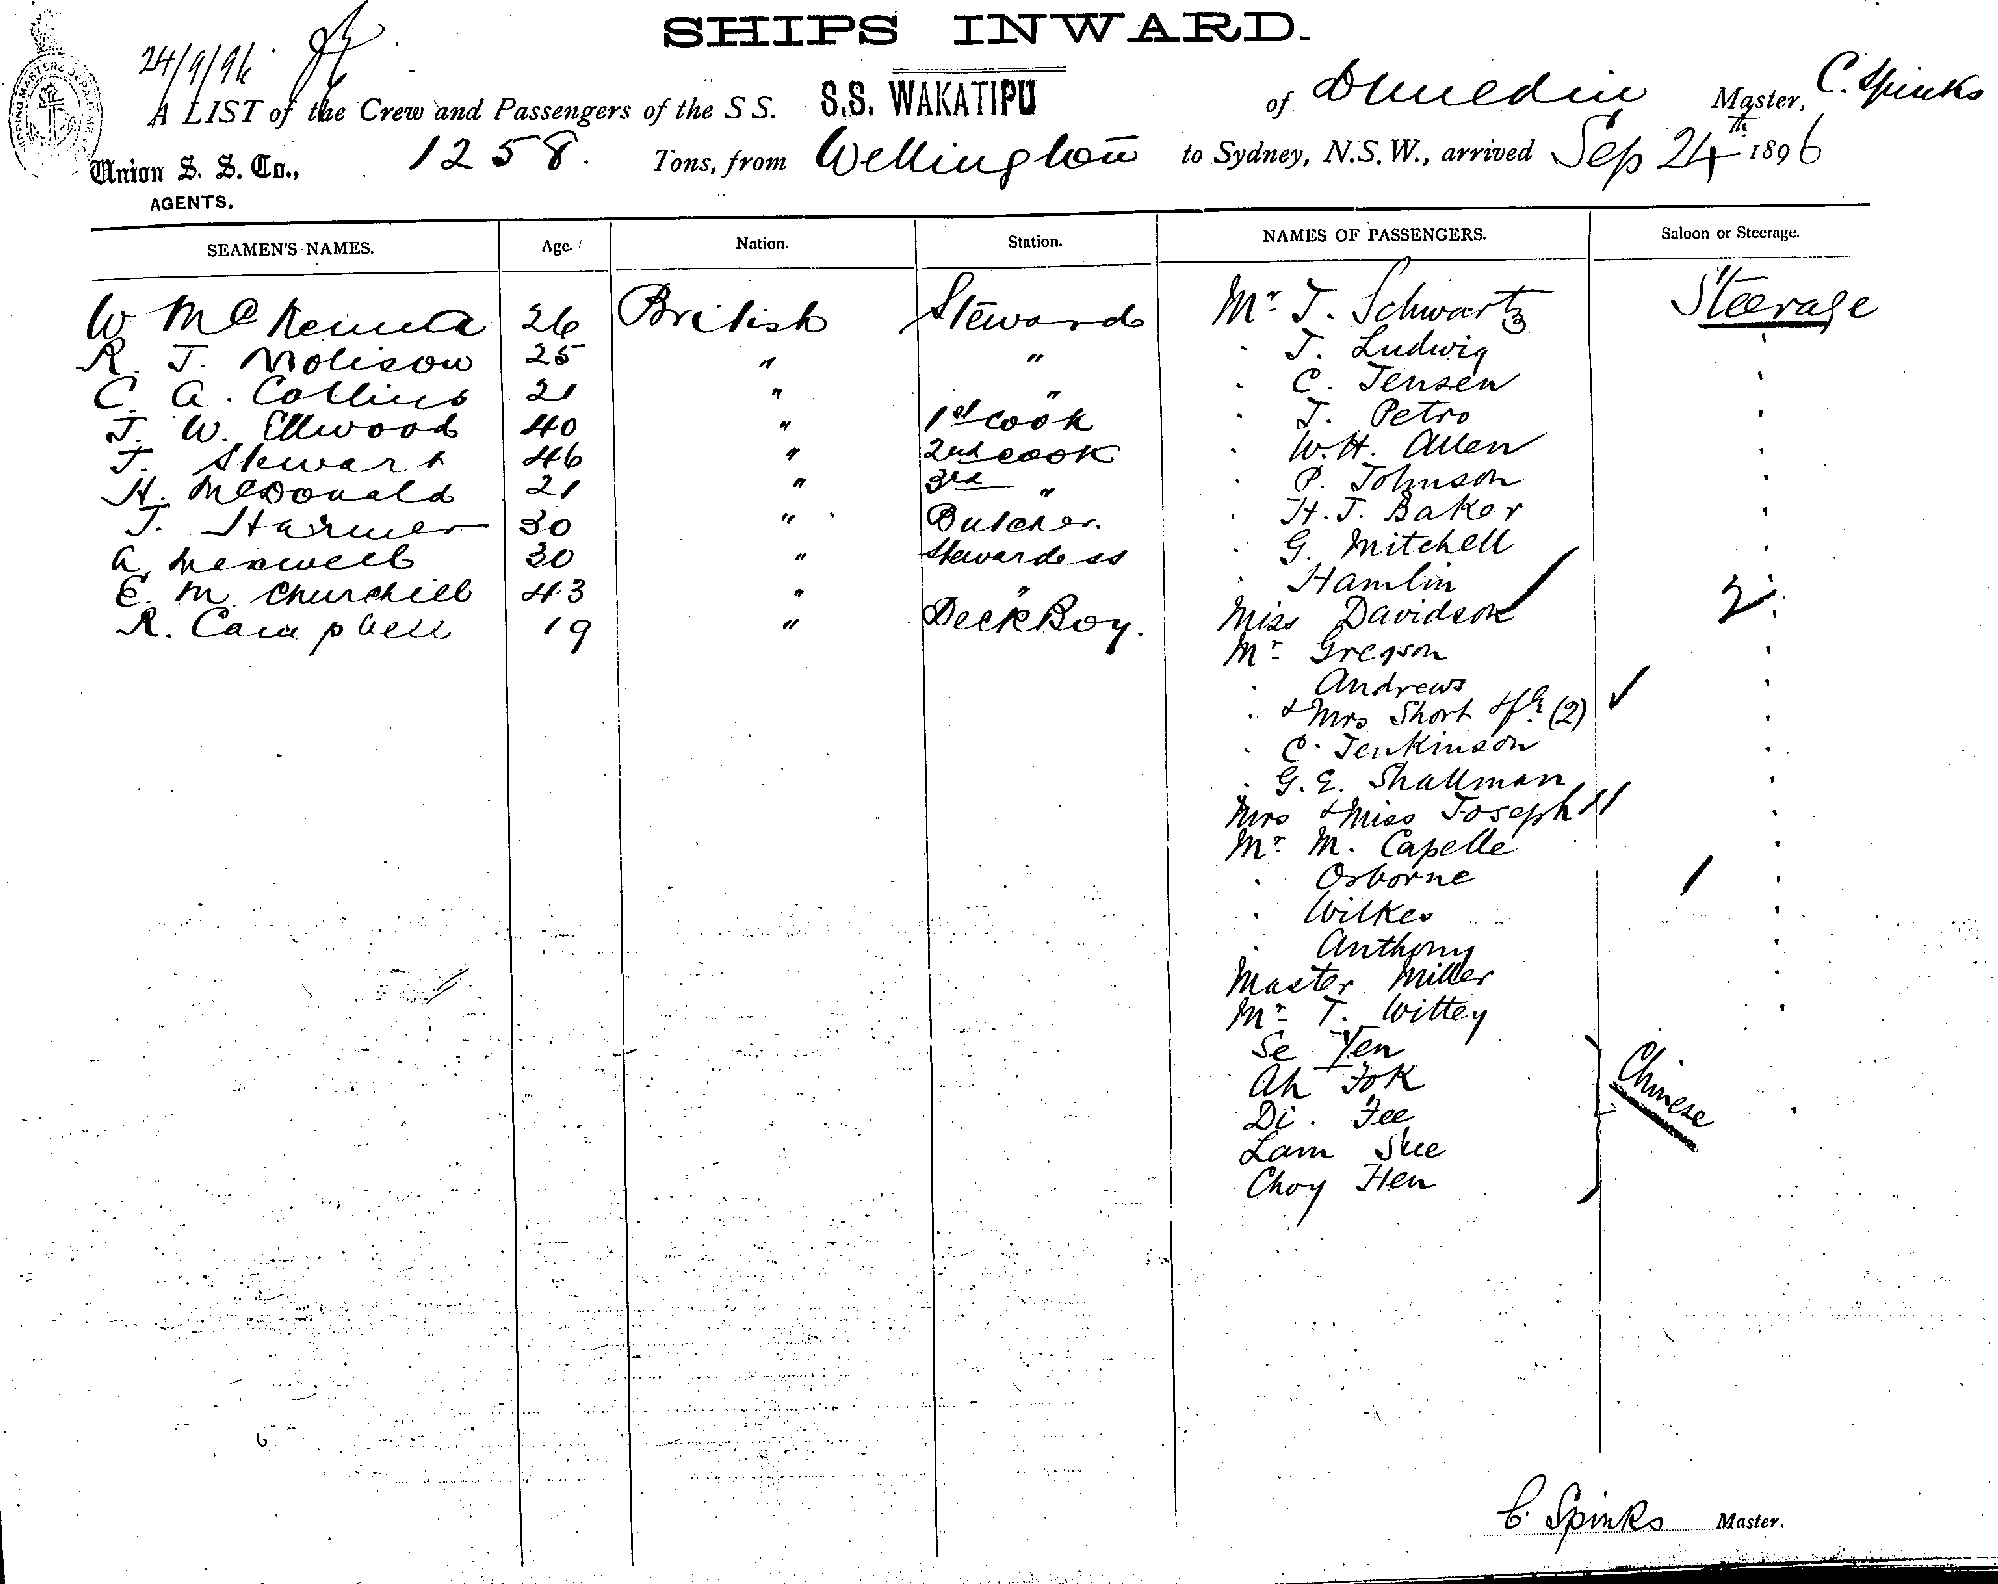 SHIPS INWARD.
24/9/96
A LIST of the Crew and Passengers of the S S. S.S. WAKATIPU of Dunedin Master, C. Spinks
Union S. S. Co., 1258. Tons, from Wellington to Sydney, N.S.W., arrived Sep 24th 1896
AGENTS.
SEAMEN'S NAMES. Age. Nation. Station. NAMES OF PASSENGERS. Saloon or Steerage.
W McKenna 26 British Steward Mr J. Schwartz Steerage
R. J. Molison 25 " " " J. Ludwig "
C. A. Collins 21 " " " C. Jensen "
J. W. Ellwood 40 " 1st cook " J. Petro "
J. Stewart 46 " 2nd cook " W.H. Allen "
H. McDonald 21 " 3rd " " P. Johnson "
J. Harmer 30 " Butcher. " H. J. Baker "
A. Maxwell 30 " Stewardess " G. Mitchell "
E. M. Churchill 43 " " " Hamlin "
R. Campbell 19 " Deck Boy. Miss Davidson "
Mr Gregson "
" Andrews "
" & Mrs Short (2) "
" C. Jenkinson "
" G. E. Shallman "
Mrs & Miss Joseph "
Mr M. Capelle "
" Osborne "
" Wilkes "
" Anthony "
Master Miller "
Mr T. Wittey "
Se Yen
Ah Fok
Di. Fee Chinese "
Lam Sue
Choy Hen
C. Spinks Master.